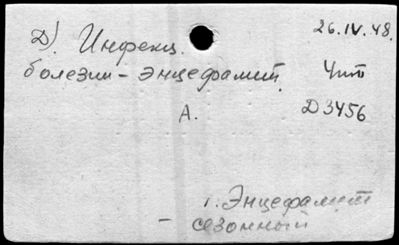 Д) Инфекц. 26.IV.48.
болезни - энцефалит. Чит
А. D3456
1. Энцефалит
- сезонный